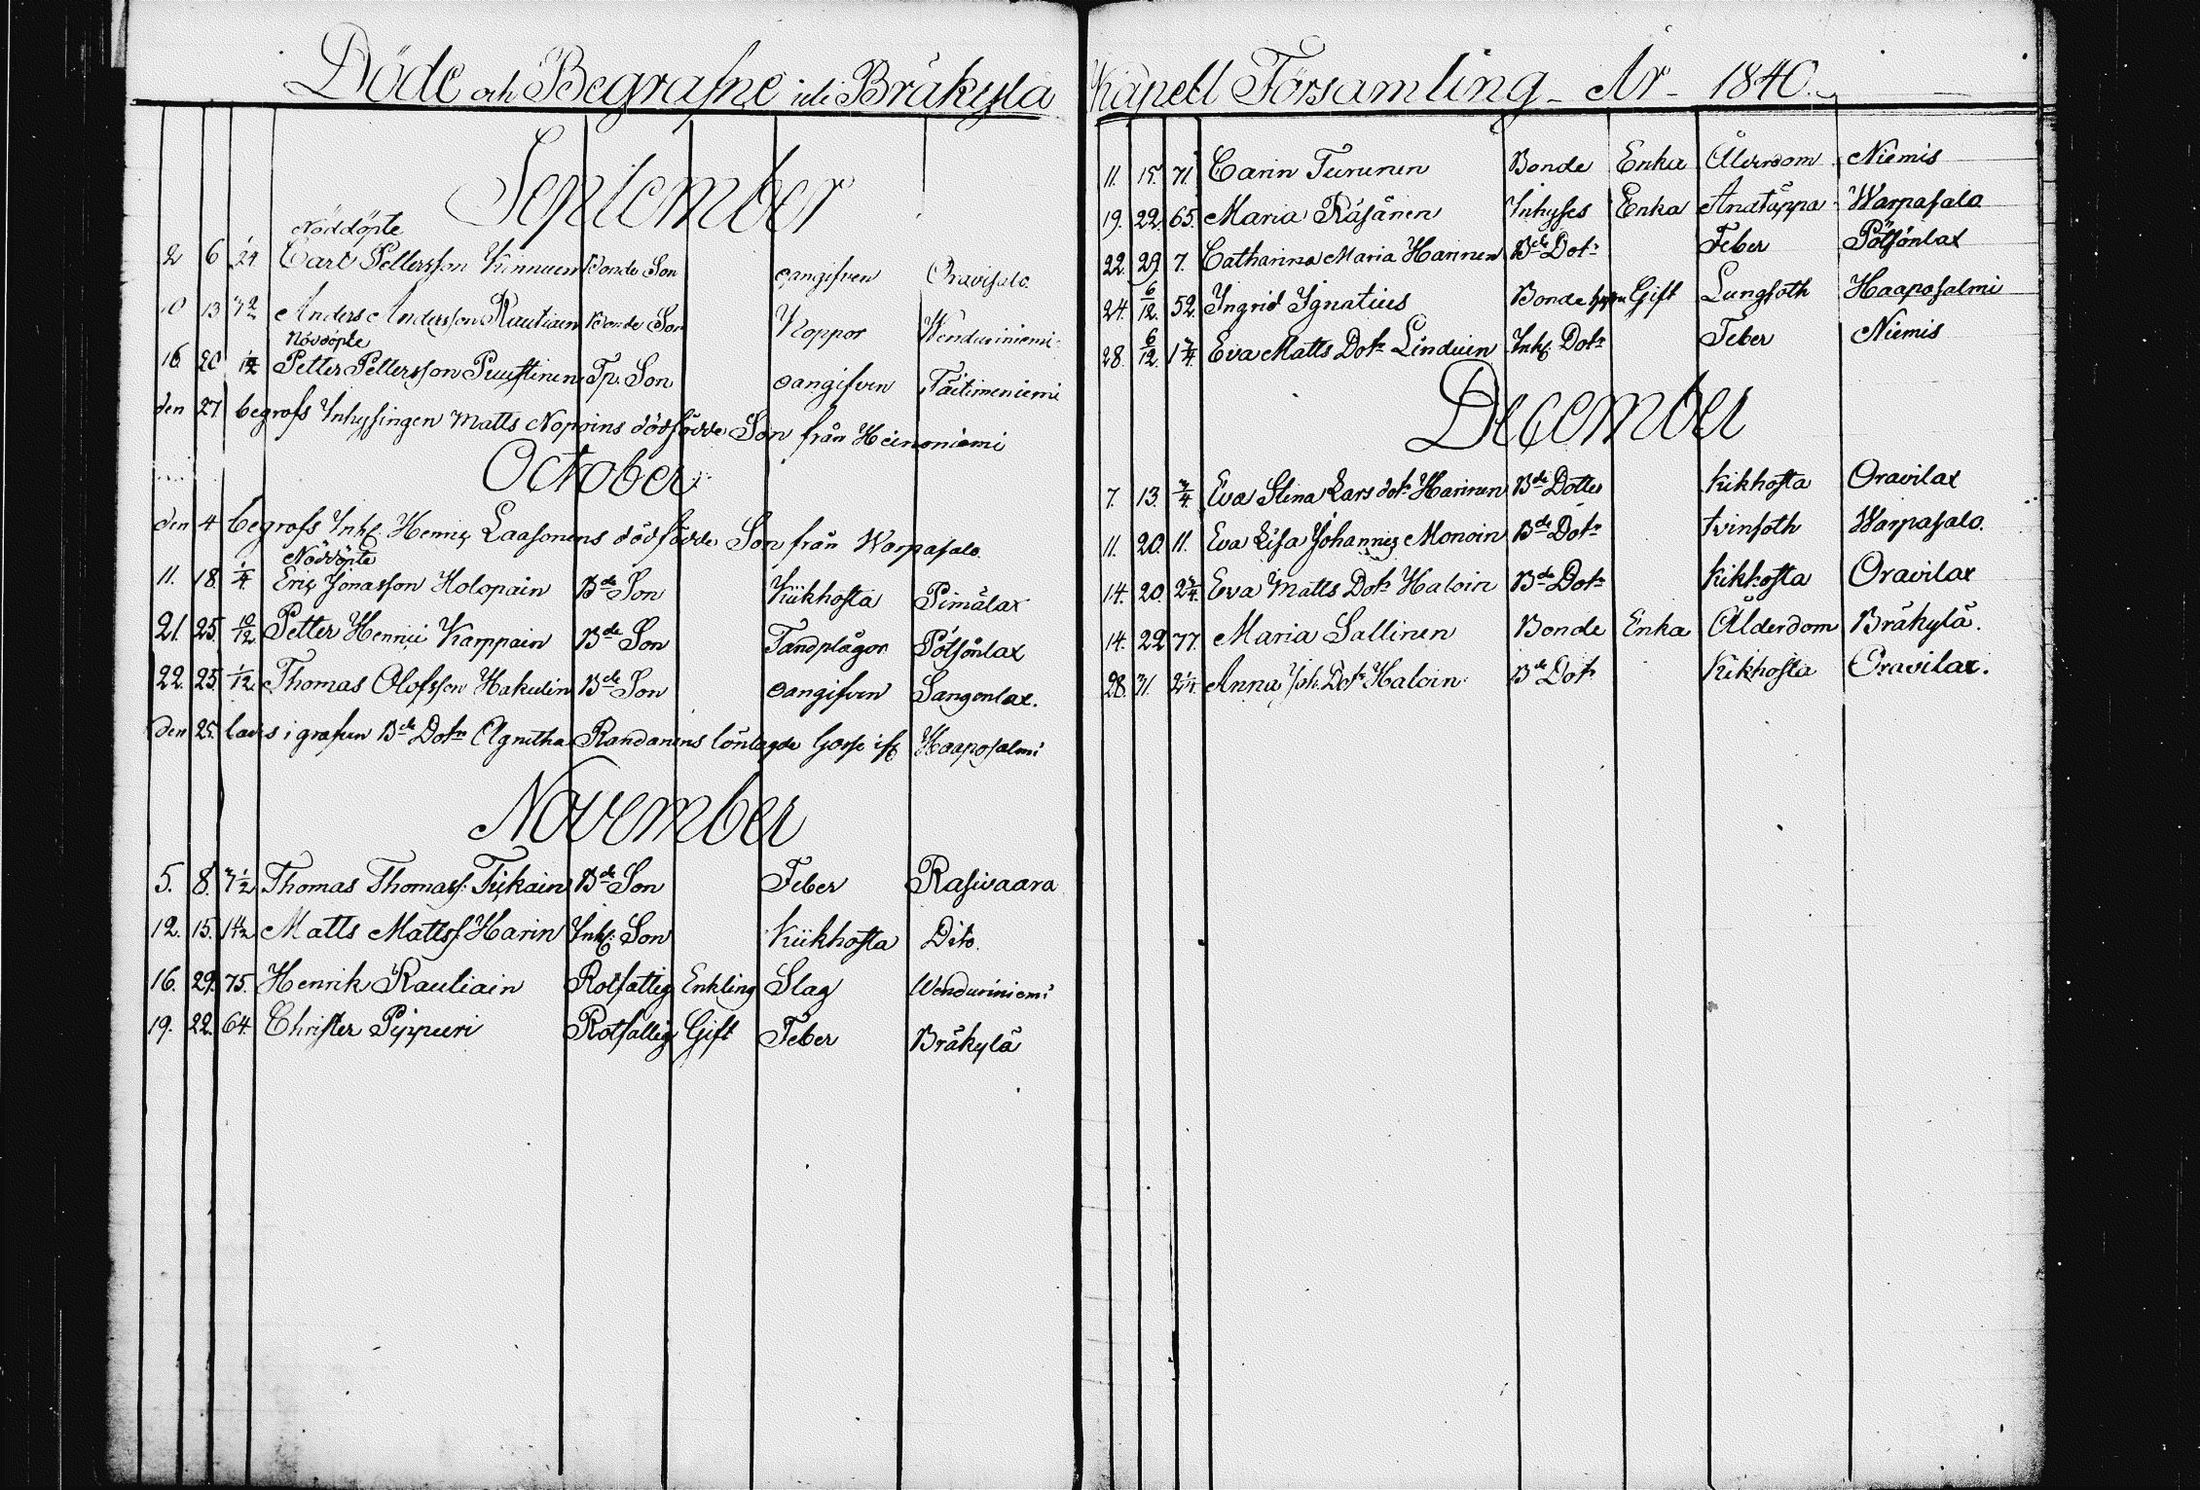 Döde och Begrafne uti Bräkylä Kapell Församling År 1840.
September
Nöddöpte
2 6 1/24 Carl Pettersson Kinnuen Bonde Son oangifven Oravisalo
10 13 Anders Andersson Rautiain Bonde Son Koppor Wenduriniemi
Nöddöpte
16. 20 Petter Pettersson Puustinen Tp. Son oangifven Täitimeniemi
den 27 begrofs Inhysingen Matts Noposins dödfödde Son från Heinoniemi
October
den 4 begrofs Inhs. Henric Laasonens dödfödde Son från Warpasalo
Nöddöpte
11. 18. 1/4 Eric Jonasson Holopain Bde Son Kikhosta Pimälax
21. 25. 10/12 Petter Henrici Karppain Bde Son Tandplågor Pötsönlax
22. 25 1/12 Thomas Olofsson Hakulin Bde Son oangifven Sangenlax.
den 25. lades i grafven Bde Dotr Agnetha Randanens lönlagde Gosse ifr. Haaposalmi
November
5. 8. 3 1/2 Thomas Thomass. Tickain Bde Son Feber Rasivaara
12. 15. Matts Mattss. Harin Inhs. Son Kikhosta Dito.
16. 29. 75. Henrik Rautiain Rotfattig Enkling Slag Wenduriniemi
19. 22. 64. Christer Pippuri Rotfattig Gift Feber Bräkylä
11. 15. 71. Carin Turunen Bonde Enka Ålerdom Niemis
19. 22. 65. Maria Räsänen Inhyses Enka Andtäppa Warpasalo
22. 29 7. Catharina Maria Harinen Bde Dotr Feber Pötsönlax
24. 6/12 52. Ingrid Ignatius Bonde Gift Lungsoth Haaposalmi
28. 6/12. 1 3/4. Eva Matts Dotr Linduin Inhs. Dotr Feber Niemis
December
7. 13. 3/4. Eva Stina Lars dotr Harinen Bde Dotter Kikhosta Oravilax
11. 20. 11. Eva Lisa Johannis Monoin Bde Dotr tvinsoth Warpasalo.
14. 20. 2 3/4. Eva Matts Dotr Haloin Bde Dotr Kikhosta Oravilax
14. 22 77. Maria Sallinen Bonde Enka Ålderdom Bräkylä.
28. 31. 2 1/4. Anna Joh. Dotr Haloin Bd Dotr Kikhosta Oravilax.